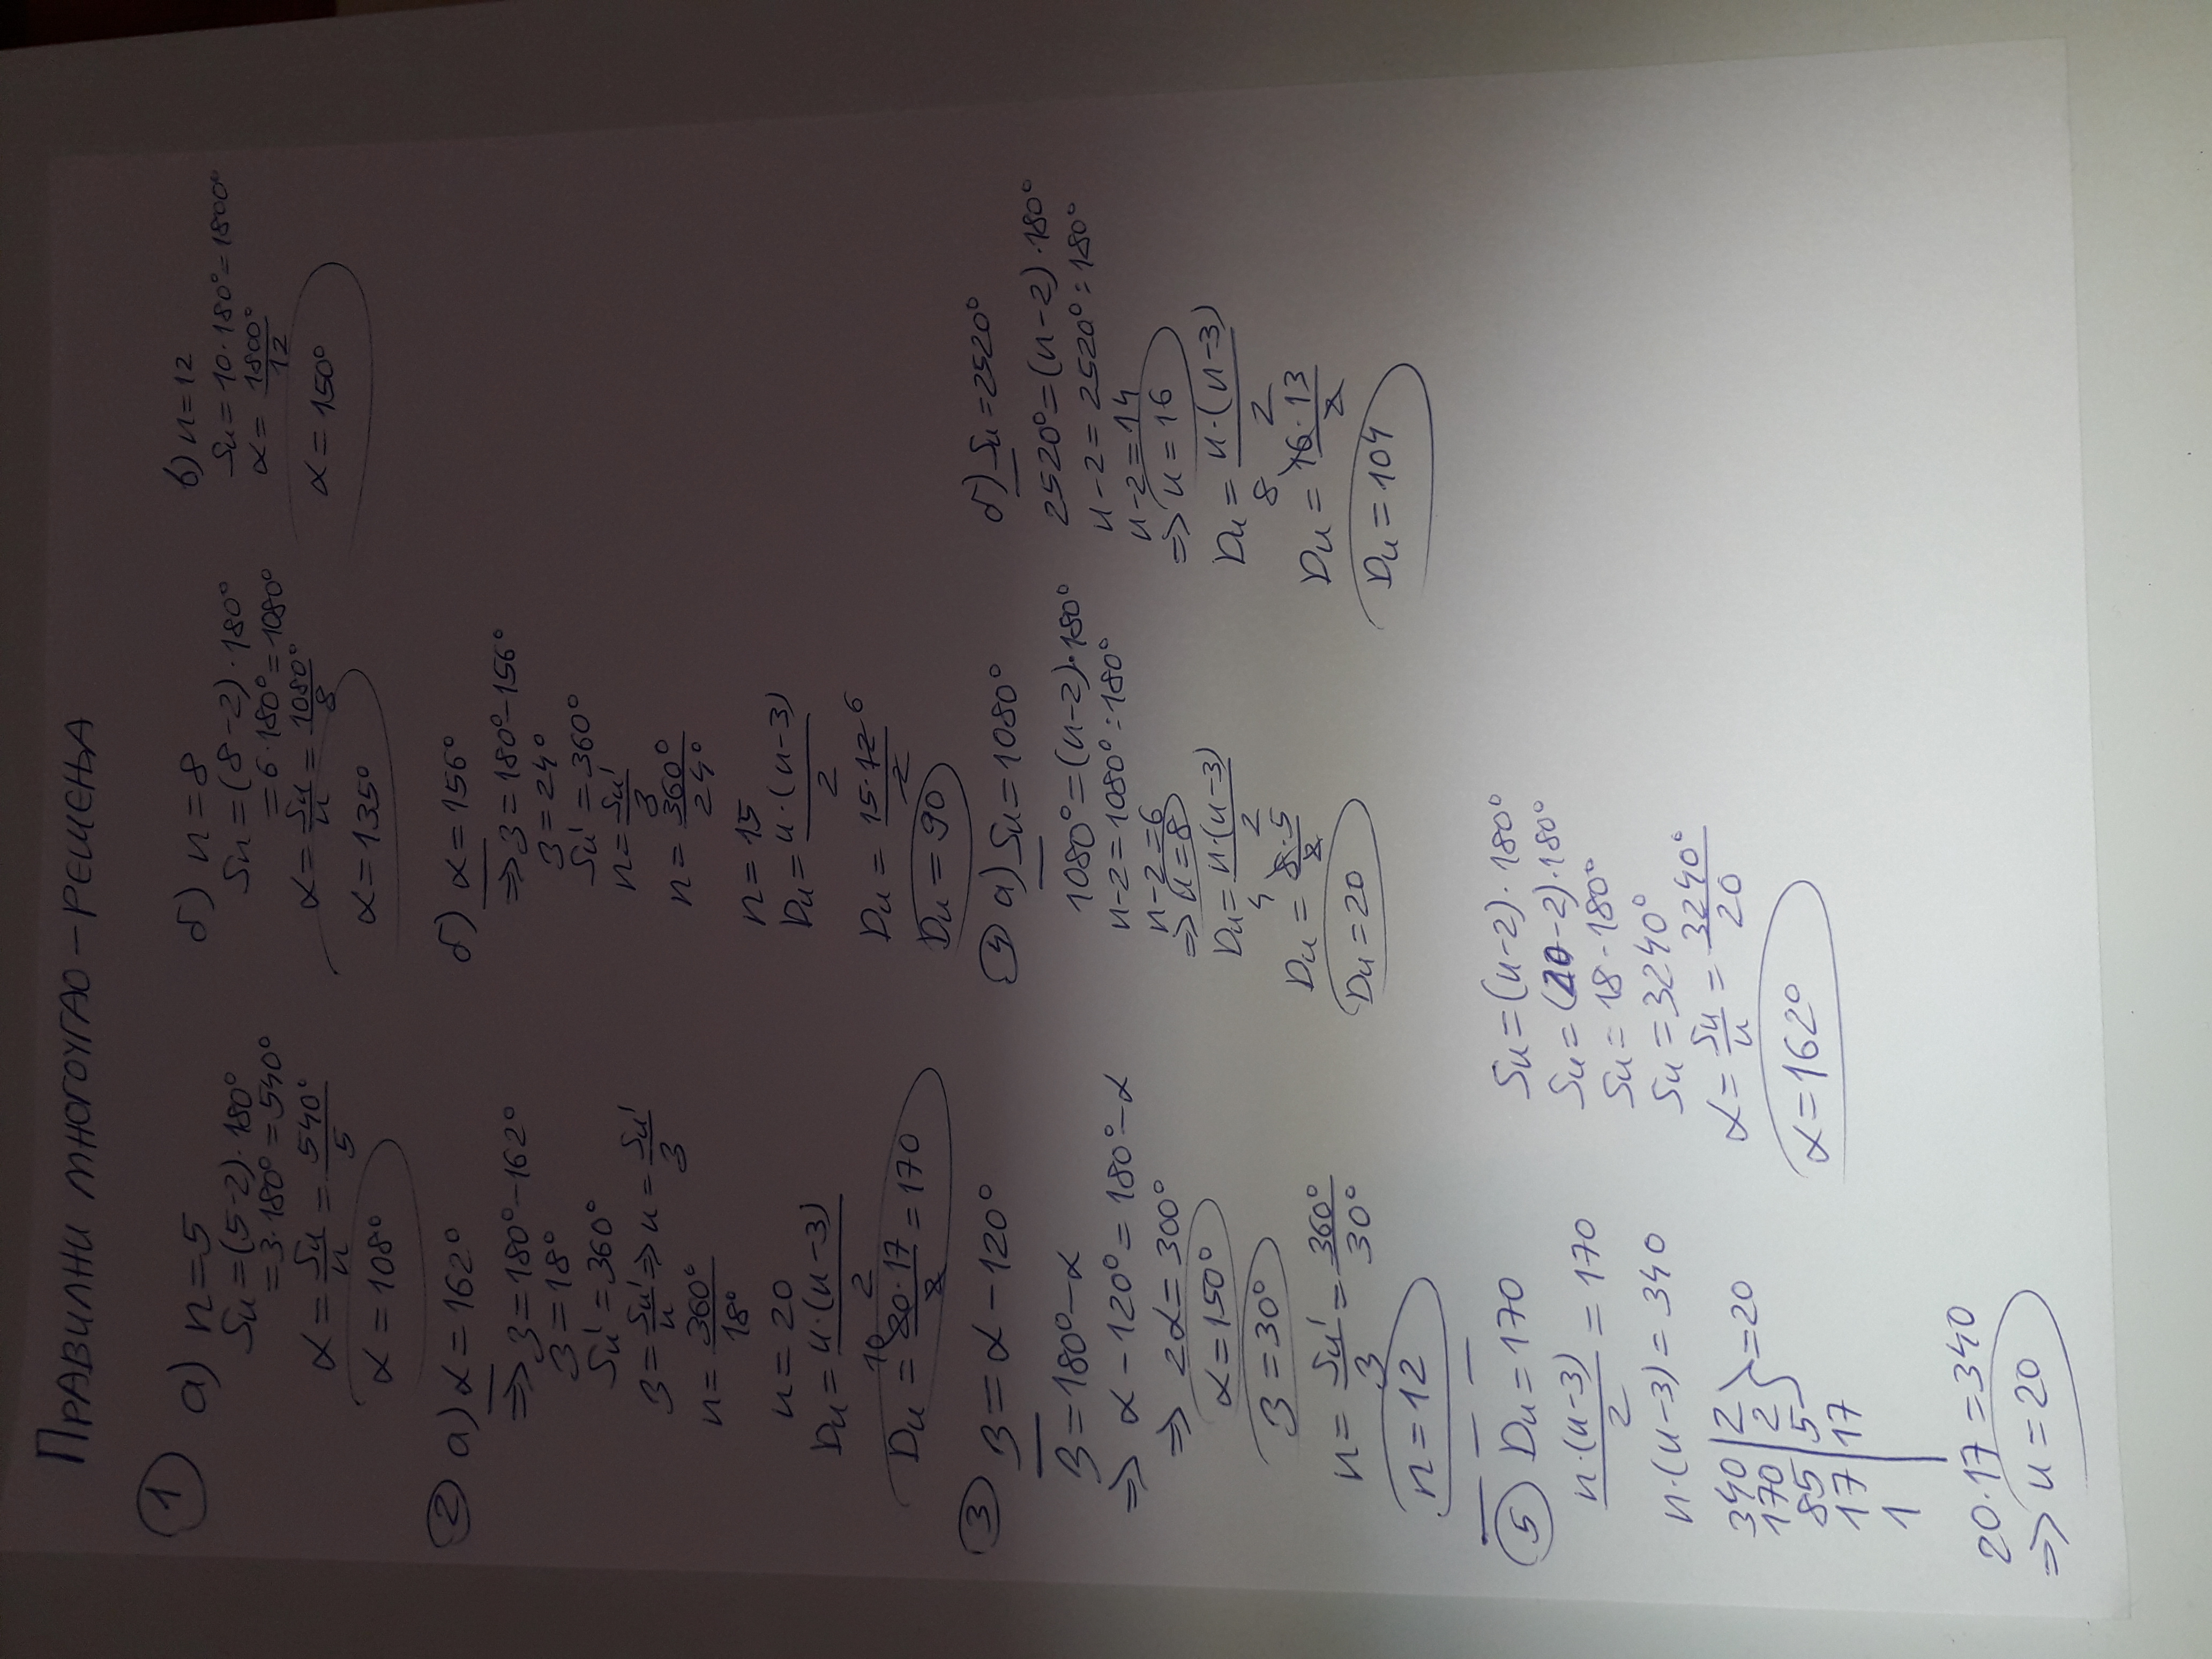 ПРАВИЛНИ МНОГОУГАО - РЕШЕЊА
1 а) n = 5
Sn = (5-2)·180°
= 3·180° = 540°
α = Sn/n = 540°/5
α = 108°
б) n = 8
Sn = (8-2)·180°
= 6·180° = 1080°
α = Sn/n = 1080°/8
α = 135°
в) n = 12
Sn = 10·180° = 1800°
α = 1800°/12
α = 150°
2 а) α = 162°
=> β = 180° - 162°
β = 18°
Sn' = 360°
β = Sn'/n => n = Sn'/β
n = 360°/18°
n = 20
Dn = n·(n-3)/2
Dn = 20·17/2 = 170
10
б) α = 156°
=> β = 180° - 156°
β = 24°
Sn' = 360°
n = Sn'/β
n = 360°/24°
n = 15
Dn = n·(n-3)/2
Dn = 15·12/2
6
Dn = 90
3 β = α - 120°
β = 180° - α
=> α - 120° = 180° - α
=> 2α = 300°
α = 150°
β = 30°
n = Sn'/β = 360°/30°
n = 12
4 а) Sn = 1080°
1080° = (n-2)·180°
n-2 = 1080°:180°
n-2 = 6
=> n = 8
Dn = n·(n-3)/2
4
Dn = 8·5/2
Dn = 20
б) Sn = 2520°
2520° = (n-2)·180°
n-2 = 2520°:180°
n-2 = 14
=> n = 16
Dn = n·(n-3)/2
8
Dn = 16·13/2
Dn = 104
5 Dn = 170
n·(n-3)/2 = 170
n·(n-3) = 340
340 | 2
170 | 2 } = 20
85 | 5
17 | 17
1 |
20·17 = 340
=> n = 20
Sn = (n-2)·180°
Sn = (20-2)·180°
Sn = 18·180°
Sn = 3240°
α = Sn/n = 3240°/20
α = 162°